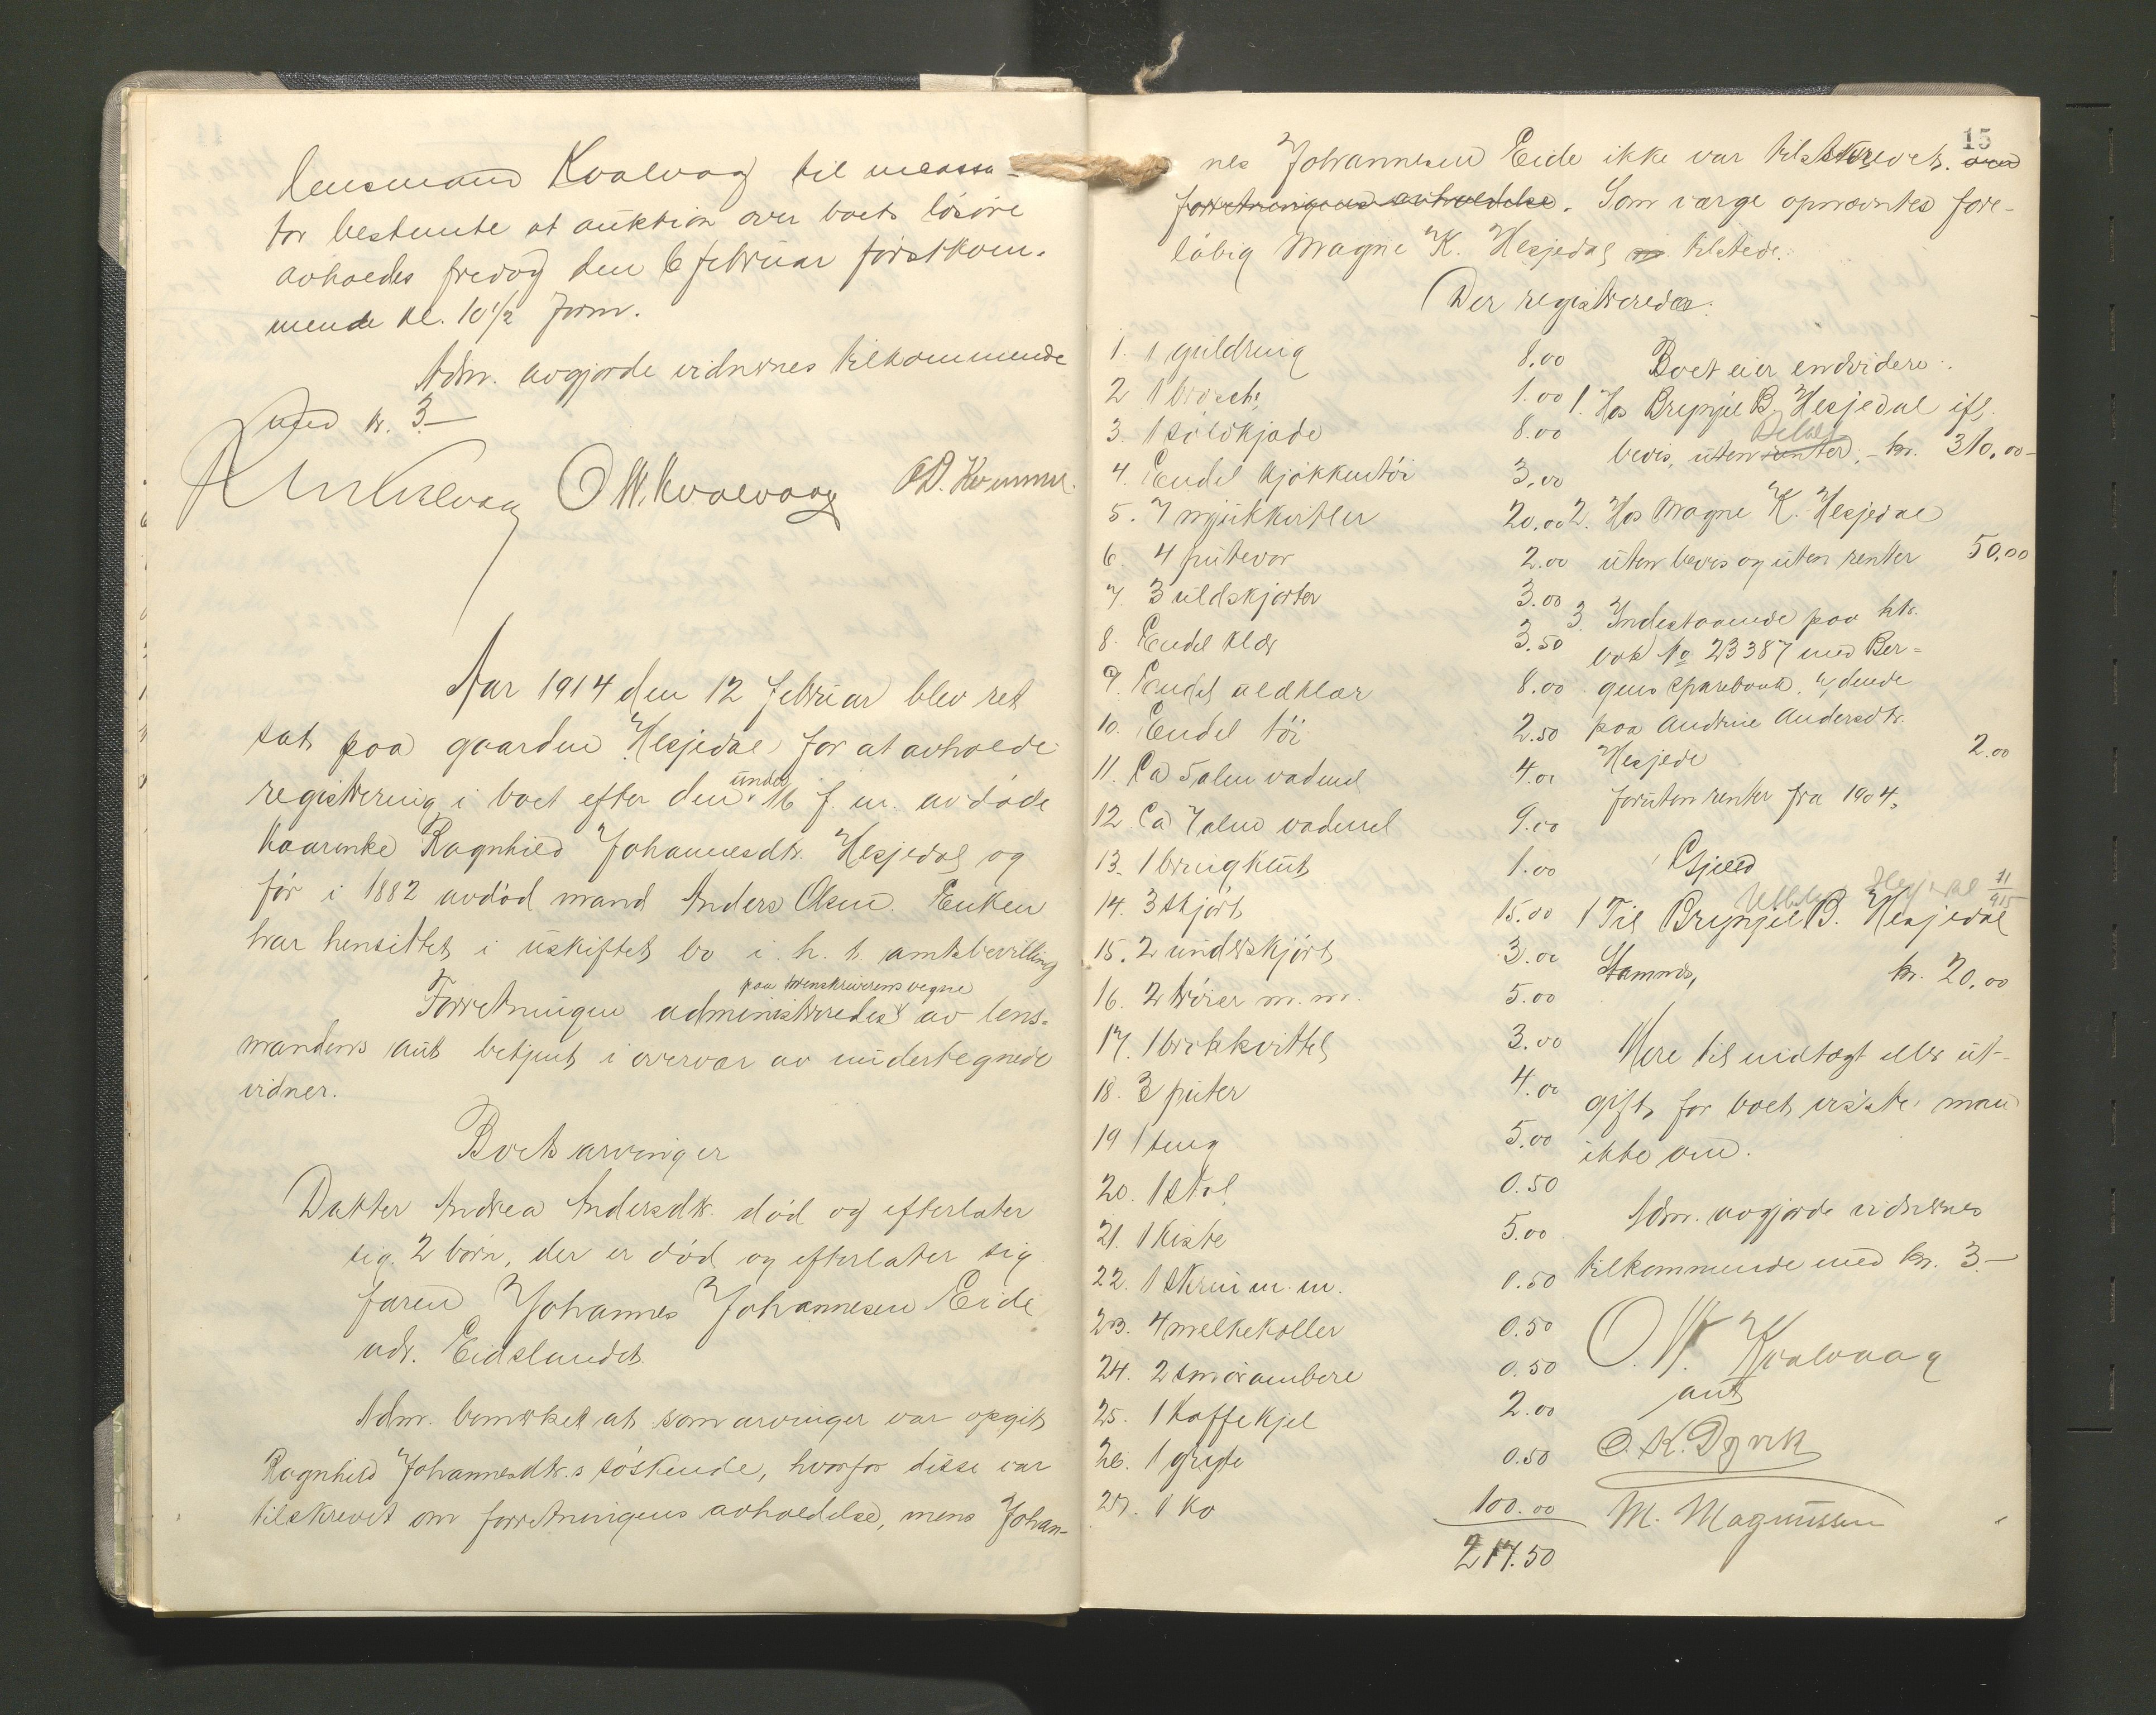 lensmand Kvalvaag til incassa-
tor bestemte at auktion over boets lösöre
avholdes fredag den 6 februar förstkom-
mende kl. 10½ form.
Adm. avgjorde vidnernes tilkommende
med kr. 3.-
O W. Kvalvaag
Aar 1914 den 12 februar blev ret
sat paa gaarden Hesjedal for at avholde
registrering i boet efter den under 16 f. m. avdöde
kaarenke Ragnhild Johannesdtr. Hesjedal og
för i 1882 avdöd mand Anders Olsen. Enken
har hensittet i uskiftet bo i h. t. amtsbevilling
paa sorenskriverens vegne
Forretningen administreredes av lens-
mandens aut. betjent i overvær av undertegnede
vidner.
Boets arvinger
Datter Andrea Andersdtr. död og efterlater
sig 2 börn, der er död og efterlater sig
faren Johannes Johannesen Eide
adr. Eidslandet
Adm. bemerket at som arvinger var opgit
Ragnhild Johannesdtr.s söskende, hvorfor disse var
tilskrevet om forretningens avholdelse, mens Johan-
15
nes Johannesen Eide ikke var tilskrevet. om
forretningens avholdelse. Som værge opnævntes fore-
löbig Magne K. Hesjedal tilstede.
Der registreredes:
1. 1 guldring 8.00
2 1 brosche 1.00
3. 1 sölvkjæde 8.00
4. Endel kjökkentöi 3.00
5. 7 mjukkvitler 20.00
6. 4 putevar 2.00
7. 3 uldskjorter 3.00
8. Endel klær 3.50
9. Endel uldklær 8.00
10. Endel töi 2.50
11. Ca 5 alen vadmel 4.00
12. Ca 7 alen vadmel 9.00
13. 1 bringklut 1.00
14. 3 skjört 15.00
15. 2 underskjört 3.00
16. 2 tröier m. m. 5.00
17. 1 brikkvittel 3.00
18. 3 puter 4.00
19 1 seng 5.00
20. 1 stol 0.50
21. 1 kiste 5.00
22. 1 skrin m. m. 0.50
23. 4 melkekoller 0.50
24. 2 smörambere 0.50
25. 1 kaffekjel 2.00
26. 1 gryte 0.50
27. 1 ko 100.00
217.50
Boet eier endvidere:
1. Hos Brynjel B. Hesjedal ifl.
bevis, uten renter, - kr. 310,00
2. Hos Magne K. Hesjedal
uten bevis og uten renter 50,00
3. Indestaaende paa ktr.
bok No 23387 med Ber-
gens sparebank, lydende
paa Andrine Andersdtr.
Hesjedal 2.00
foruten renter fra 1904.
Gjeld
1 Til Brynjel B. Hesjedal
Stamnes, kr. 20,00
Mere til indtægt eller ut-
gift for boet visste man
ikke om.
Adm. avgjorde vidnernes
tilkommende med kr. 3.-
O. W. Kvalvaag
aut
O. K. Dyvik
M. Magnussen